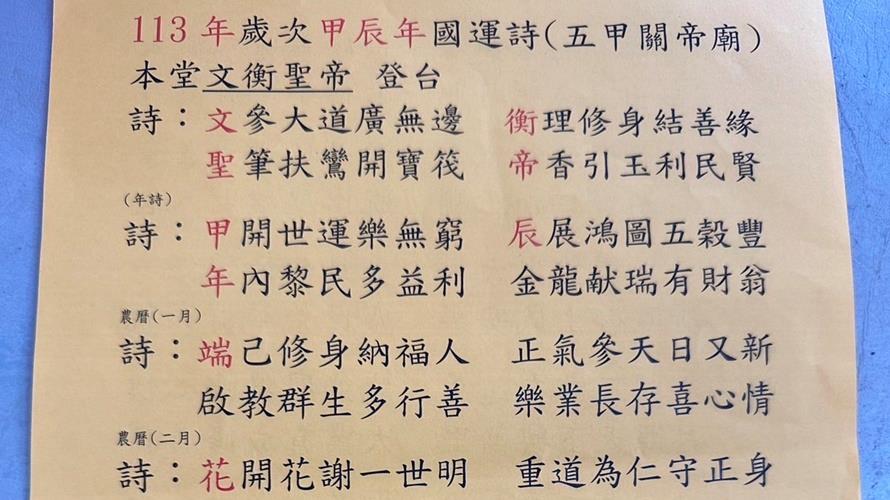 113年歲次甲辰年國運詩(五甲關帝廟)
本堂文衡聖帝 登台
詩：文參大道廣無邊 衡理修身結善緣
聖筆扶鸞開寶筏 帝香引玉利民賢
(年詩)
詩：甲開世運樂無窮 辰展鴻圖五穀豐
年內黎民多益利 金龍献瑞有財翁
農曆(一月)
詩：端己修身納福人 正氣參天日又新
啟教群生多行善 樂業長存喜心情
農曆(二月)
詩：花開花謝一世明 重道為仁守正身